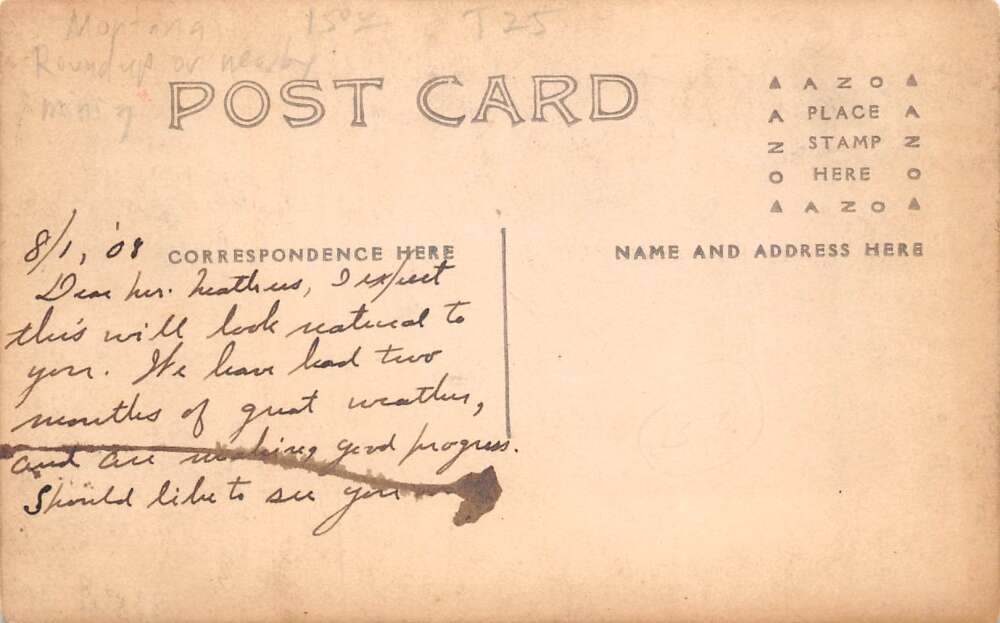 Montana 1504 T25
Roundup or nearby
POST CARD
AZO
PLACE
STAMP
HERE
AZO
AZO
AZO
8/1, '08 CORRESPONDENCE HERE
NAME AND ADDRESS HERE
Dear Mr. I expect
this will look natural to
you. We have had two
months of great weather,
and are making good progress.
Should like to see you